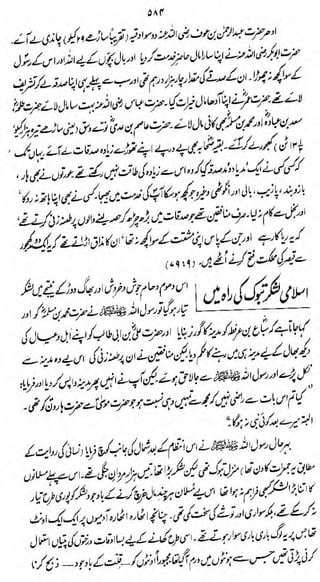 ۵۸۴
ادھر حضرت عبدالرحمن بن عوف رضی اللہ عنہ دو سو اوقیہ (تقریباً ساڑھے ۲۹ کیلو) چاندی لے آئے۔
حضرت ابوبکر رضی اللہ عنہ نے اپنا سارا مال حاضرِ خدمت کر دیا اور بال بچوں کے لیے اللہ اور اس کے رسول
کے سوا کچھ نہ چھوڑا۔ ان کے صدقے کی مقدار چار ہزار درہم تھی اور سب سے پہلے یہی اپنا صدقہ لے کر تشریف
لائے تھے حضرت عمرؓ نے اپنا آدھا مال خیرات کیا۔ حضرت عباس رضی اللہ عنہ بہت سا مال لائے۔ حضرت طلحہؓ
سعد بن عبادہؓ اور محمد بن مسلمہؓ بھی کافی مال لائے۔ حضرت عاصم بن عدیؓ نوے وسق (یعنی ساڑھے تیرہ ہزار کیلو
کھجور لے کر آئے۔ بقیہ صحابہ بھی پے درپے اپنے تھوڑے زیادہ صدقات لے آئے، یہاں تک
کہ کسی کسی نے ایک مُد یا دو مُد صدقہ کیا کہ وہ اس سے زیادہ کی طاقت نہیں رکھتے تھے۔ عورتوں نے بھی ہار،
بازو بند، پازیب، بالی اور انگوٹھی وغیرہ جو کچھ ہو سکا آپؐ کی خدمت میں بھیجا۔ کسی نے بھی اپنا ہاتھ نہ روکا
اور بخل سے کام نہ لیا۔ صرف منافقین تھے جو صدقات میں بڑھ چڑھ کر حصہ لینے والوں پر طعنہ زنی کرتے تھے
کہ یہ ریا کار ہے) اور جن کے پاس اپنی مشقت کے سوا کچھ نہ تھا ان کا مذاق اڑاتے تھے کہ یہ ایک دو مُد کھجور
سے قیصر کی مملکت فتح کرنے اُٹھے ہیں۔ (۹: ۷۹)
اسلامی لشکر تبوک کی راہ میں
اس دھوم دھام جوش و خروش اور بھاگ دوڑ کے نتیجے میں لشکر
تیار ہو گیا تو رسول اللہ ﷺ نے حضرت محمد بن مسلمہؓ کو اور
کہا جاتا ہے کہ سباعؓ بن عرفطہ کو مدینہ کا گورنر بنایا اور حضرت علیؓ بن ابی طالب کو اپنے اہل و عیال کی
دیکھ بھال کے لیے مدینہ ہی میں رہنے کا حکم دیا لیکن منافقین نے ان پر طعنہ زنی کی اس لیے وہ مدینہ سے
نکل پڑے اور رسول اللہ ﷺ سے جا لاحق ہوئے۔ لیکن آپؐ نے انہیں پھر مدینہ واپس کر دیا اور فرمایا:
"کیا تم اس بات سے راضی نہیں کہ مجھ سے تمہیں وہی نسبت ہو جو حضرت موسیٰؑ سے حضرت ہارونؑ کو تھی۔
البتہ میرے بعد کوئی نبی نہ ہوگا۔"
بہرحال رسول اللہ ﷺ نے اس انتظام کے بعد شمال کی جانب کوچ فرمایا (نسائی کی روایت کے
مطابق یہ جمعرات کا دن تھا) منزل تبوک تھی لیکن لشکر بڑا تھا، تیس ہزار مردانِ جنگی تھے۔ اس سے پہلے مسلمانوں
کا اتنا بڑا لشکر کبھی فراہم نہ ہوا تھا اس لیے مسلمان ہر چند مال خرچ کرنے کے باوجود لشکر کو پوری طرح تیار
نہ کر سکے تھے، بلکہ سواری اور توشے کی سخت کمی تھی۔ چنانچہ اٹھارہ اٹھارہ آدمیوں پر ایک ایک اونٹ
تھا جس پر یہ لوگ باری باری سوار ہوتے تھے۔ اسی طرح کھانے کے لیے بسا اوقات درختوں کی پتیاں استعمال
کرنی پڑتی تھیں جس سے ہونٹوں میں ورم آ گیا تھا، مجبوراً اونٹوں کو – قلت کے باوجود – ذبح کرنا